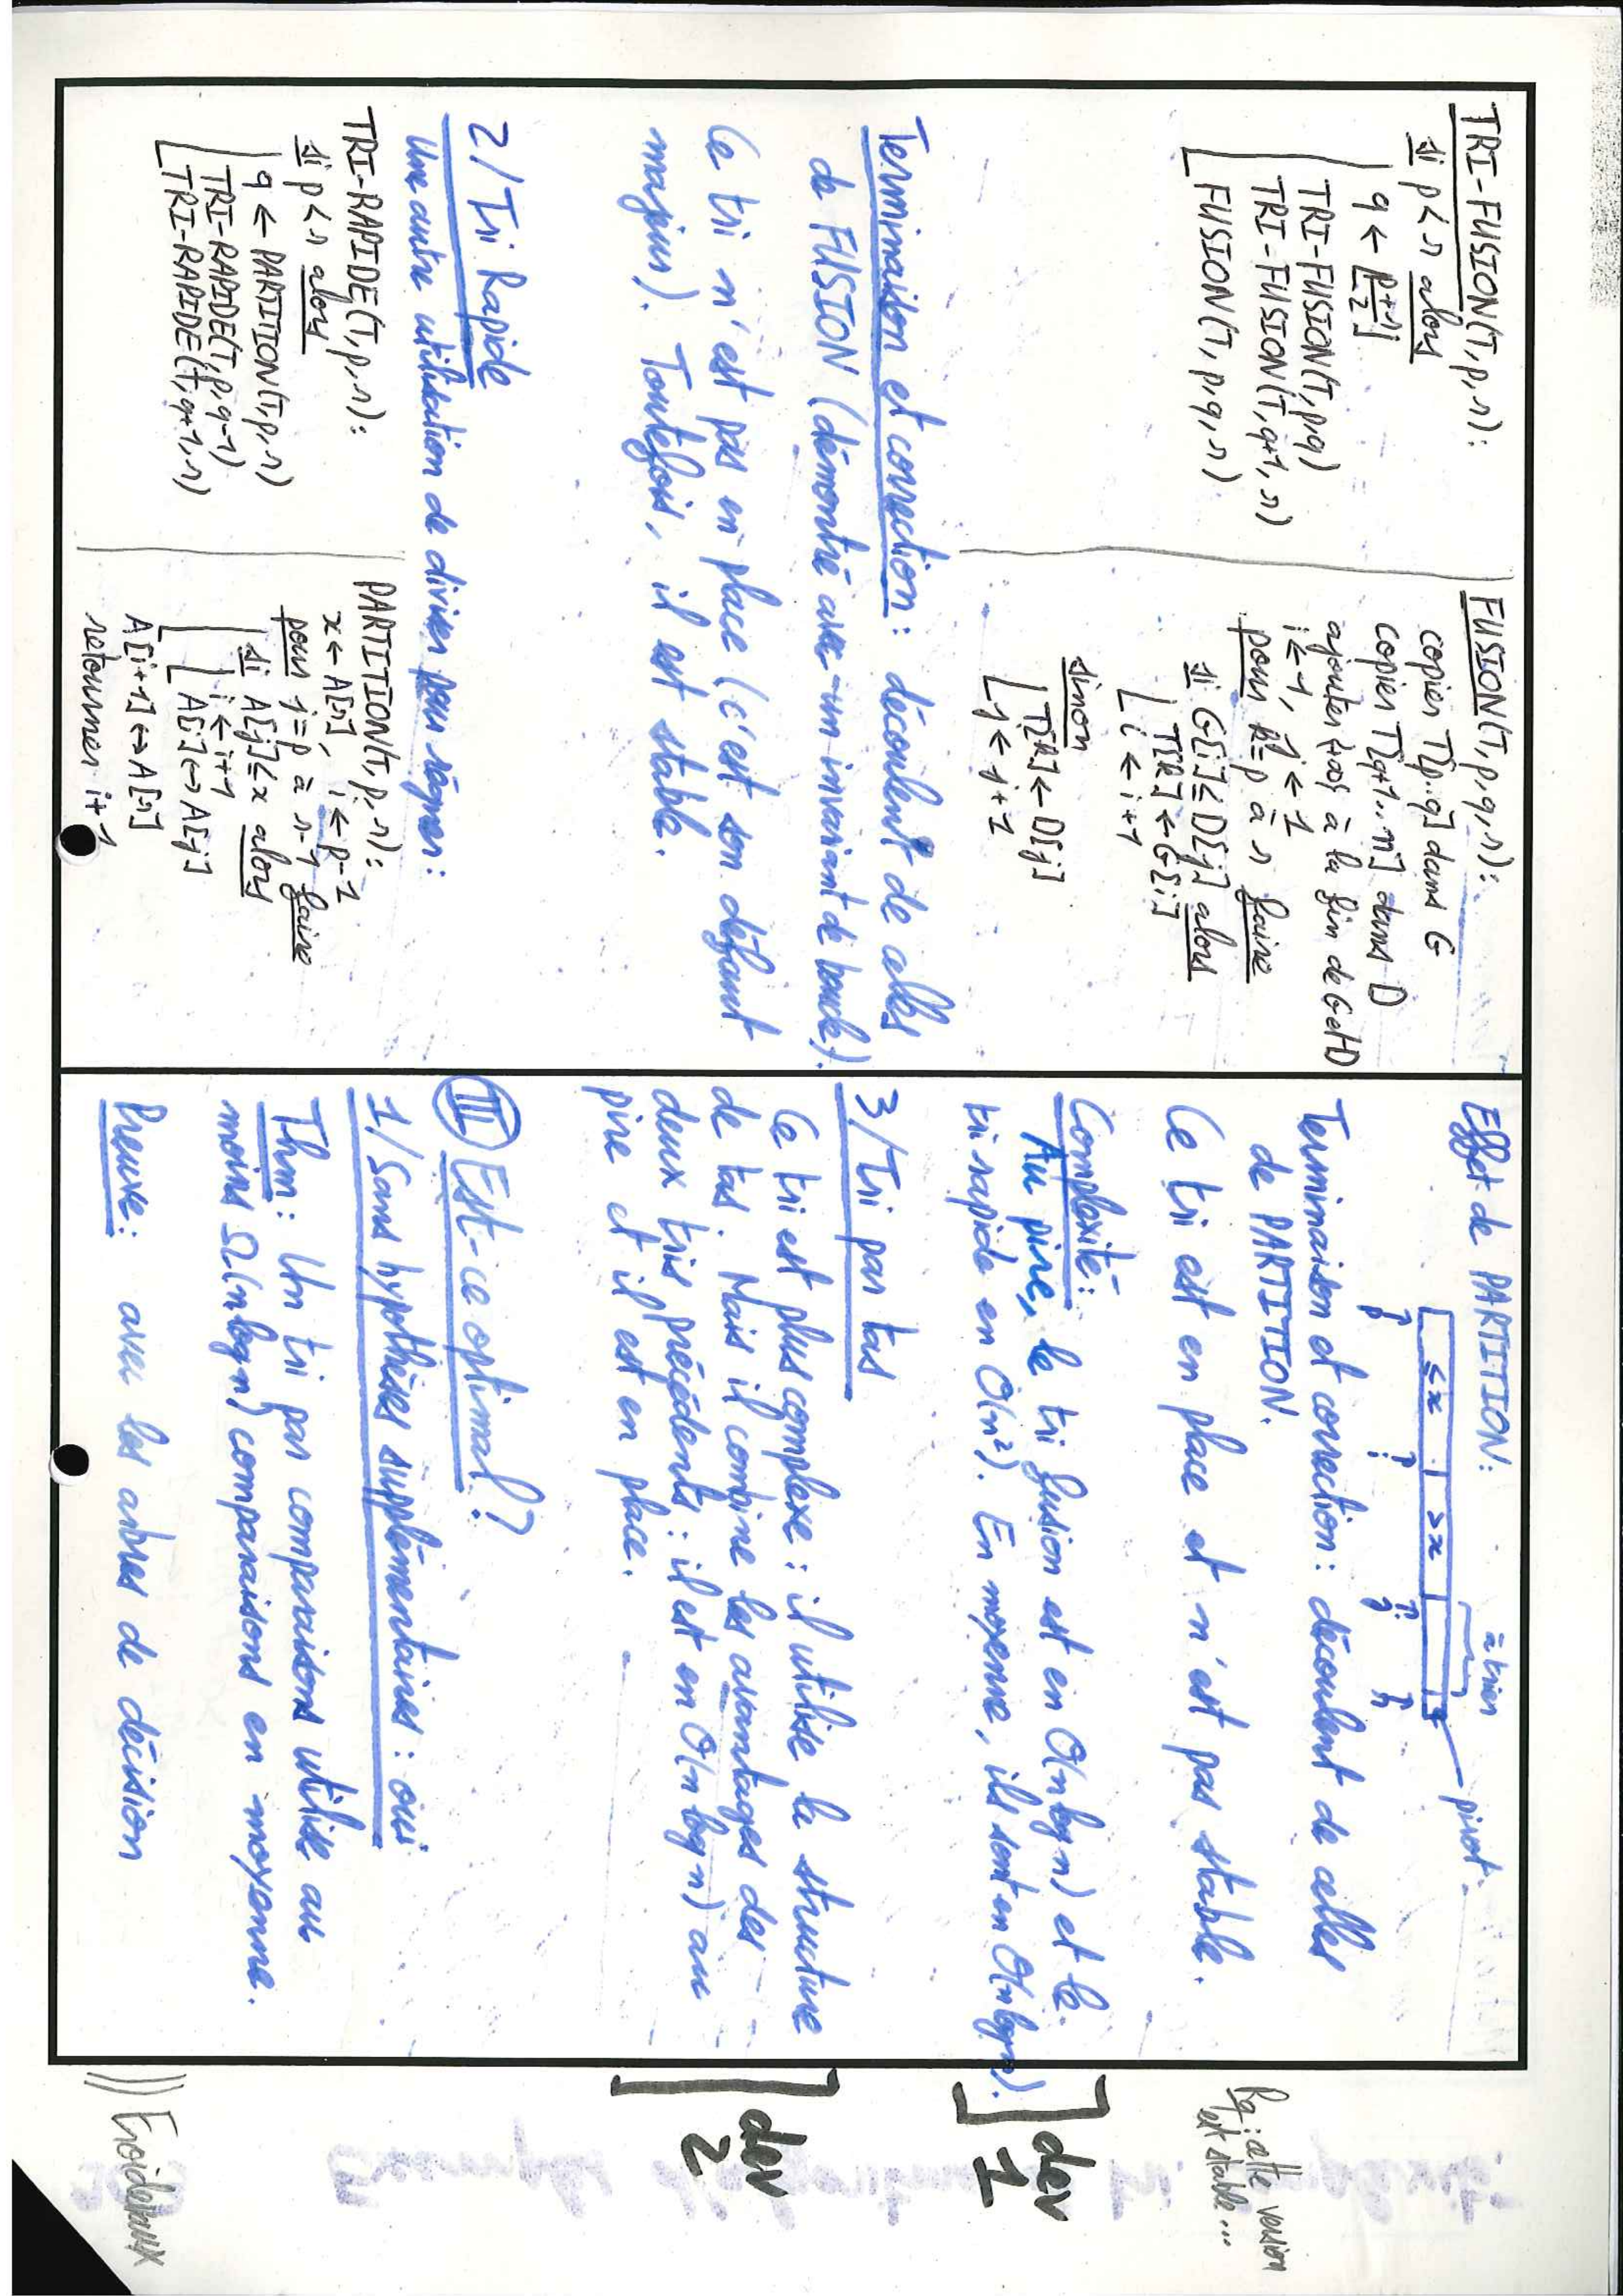 TRI-FUSION(T, p, r):
si p < r alors
q ← ⌊(p+r)/2⌋
TRI-FUSION(T, p, q)
TRI-FUSION(T, q+1, r)
FUSION(T, p, q, r)
FUSION(T, p, q, r):
copier T[p..q] dans G
copier T[q+1..r] dans D
ajouter {+∞} à la fin de G et D
i ← 1, j ← 1
pour k = p à r faire
si G[i] ≤ D[j] alors
T[k] ← G[i]
i ← i+1
sinon
T[k] ← D[j]
j ← j+1
Terminaison et correction : découlent de celles
de FUSION (démontré avec un invariant de boucle).
Ce tri n'est pas en place (c'est son défaut
majeur). Toutefois, il est stable.
2/ Tri Rapide
Une autre utilisation de diviser pour régner :
TRI-RAPIDE(T, p, r):
si p < r alors
q ← PARTITION(T, p, r)
TRI-RAPIDE(T, p, q-1)
TRI-RAPIDE(T, q+1, r)
PARTITION(T, p, r):
x ← A[r], i ← p-1
pour j = p à r-1 faire
si A[j] ≤ x alors
i ← i+1
A[i] ↔ A[j]
A[i+1] ↔ A[r]
retourner i+1
Effet de PARTITION:
à trier
≤x >x
pivot.
p i j r
Terminaison et correction : découlent de celles
de PARTITION.
Ce tri est en place et n'est pas stable.
Rq : cette version
est stable...
Complexité :
Au pire, le tri fusion est en O(n log n) et le
tri rapide en O(n²). En moyenne, ils sont en O(n log n).
dev
1
3/ Tri par tas
Ce tri est plus complexe : il utilise la structure
de tas. Mais il combine les avantages des
deux tris précédents : il est en O(n log n) au
pire et il est en place.
dev
2
III Est-ce optimal ?
1/ Sans hypothèses supplémentaires : oui
Thm : Un tri par comparaisons utilise au
moins Ω(n log n) comparaisons en moyenne.
Preuve : avec les arbres de décision
Froidevaux